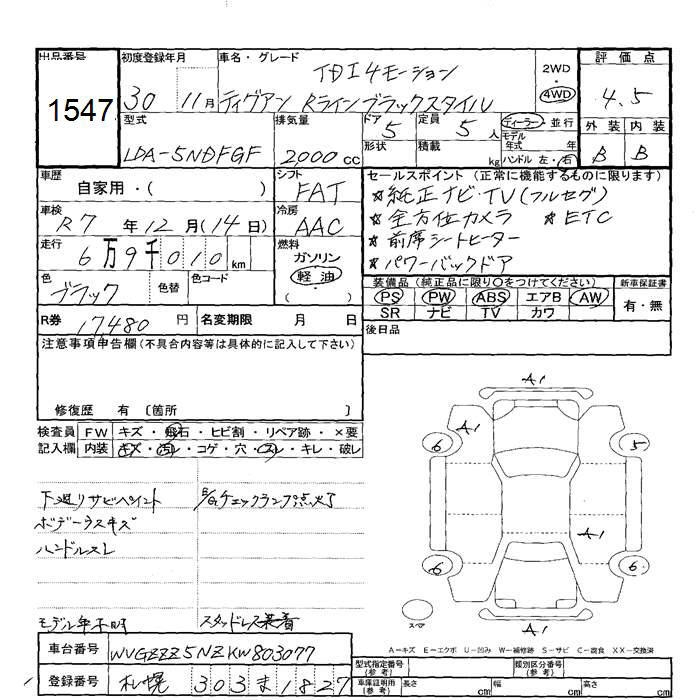 出品番号 初度登録年月 車名・グレード 評価点
1547 30 11月 TDI 4モーション
ティグアン Rラインブラックスタイル
2WD
4WD
4.5
型式 排気量 ドア 定員 ディーラー・並行
LDA-5NDFGF 2000cc 5 5人
モデル年式 年
形状 積載 kg ハンドル 左・右
外装 内装
B B
車歴 シフト セールスポイント(正常に機能するものに限ります)
自家用・( ) FAT
★純正ナビ・TV(フルセグ)
★全方位カメラ ★ETC
★前席シートヒーター
★パワーバックドア
車検 冷房
R7年12月(14日) AAC
走行 燃料
6万9千010km ガソリン
軽油
・( )
色 色替 色コード
ブラック
装備品(純正品に限り○をつけてください) 新車保証書
PS PW ABS エアB AW 有・無
SR ナビ TV カワ
R券 17480円 名変期限 月 日
後日品
注意事項申告欄(不具合内容等は具体的に記入して下さい)
修復歴 有 〔箇所 〕
検査員 FW キズ・飛石・ヒビ割・リペア跡・×要
記入欄 内装 キズ・汚レ・コゲ・穴・スレ・キレ・破レ
下廻リサビペイント E/Gチェックランプ点灯
ボデーウスキズ
ハンドルスレ
スタッドレス装着
A1
A1
6 5
A1
6 6
スペア A1
A=キズ E=エクボ U=凹み W=補修跡 S=サビ C=腐食 XX=交換済
車台番号 WVGZZZ5NZKW803077
登録番号 札幌 303 ま 1827
型式指定番号(参考) 類別区分番号(参考)
車庫証明用(参考) 長さ cm 幅 cm 高さ cm